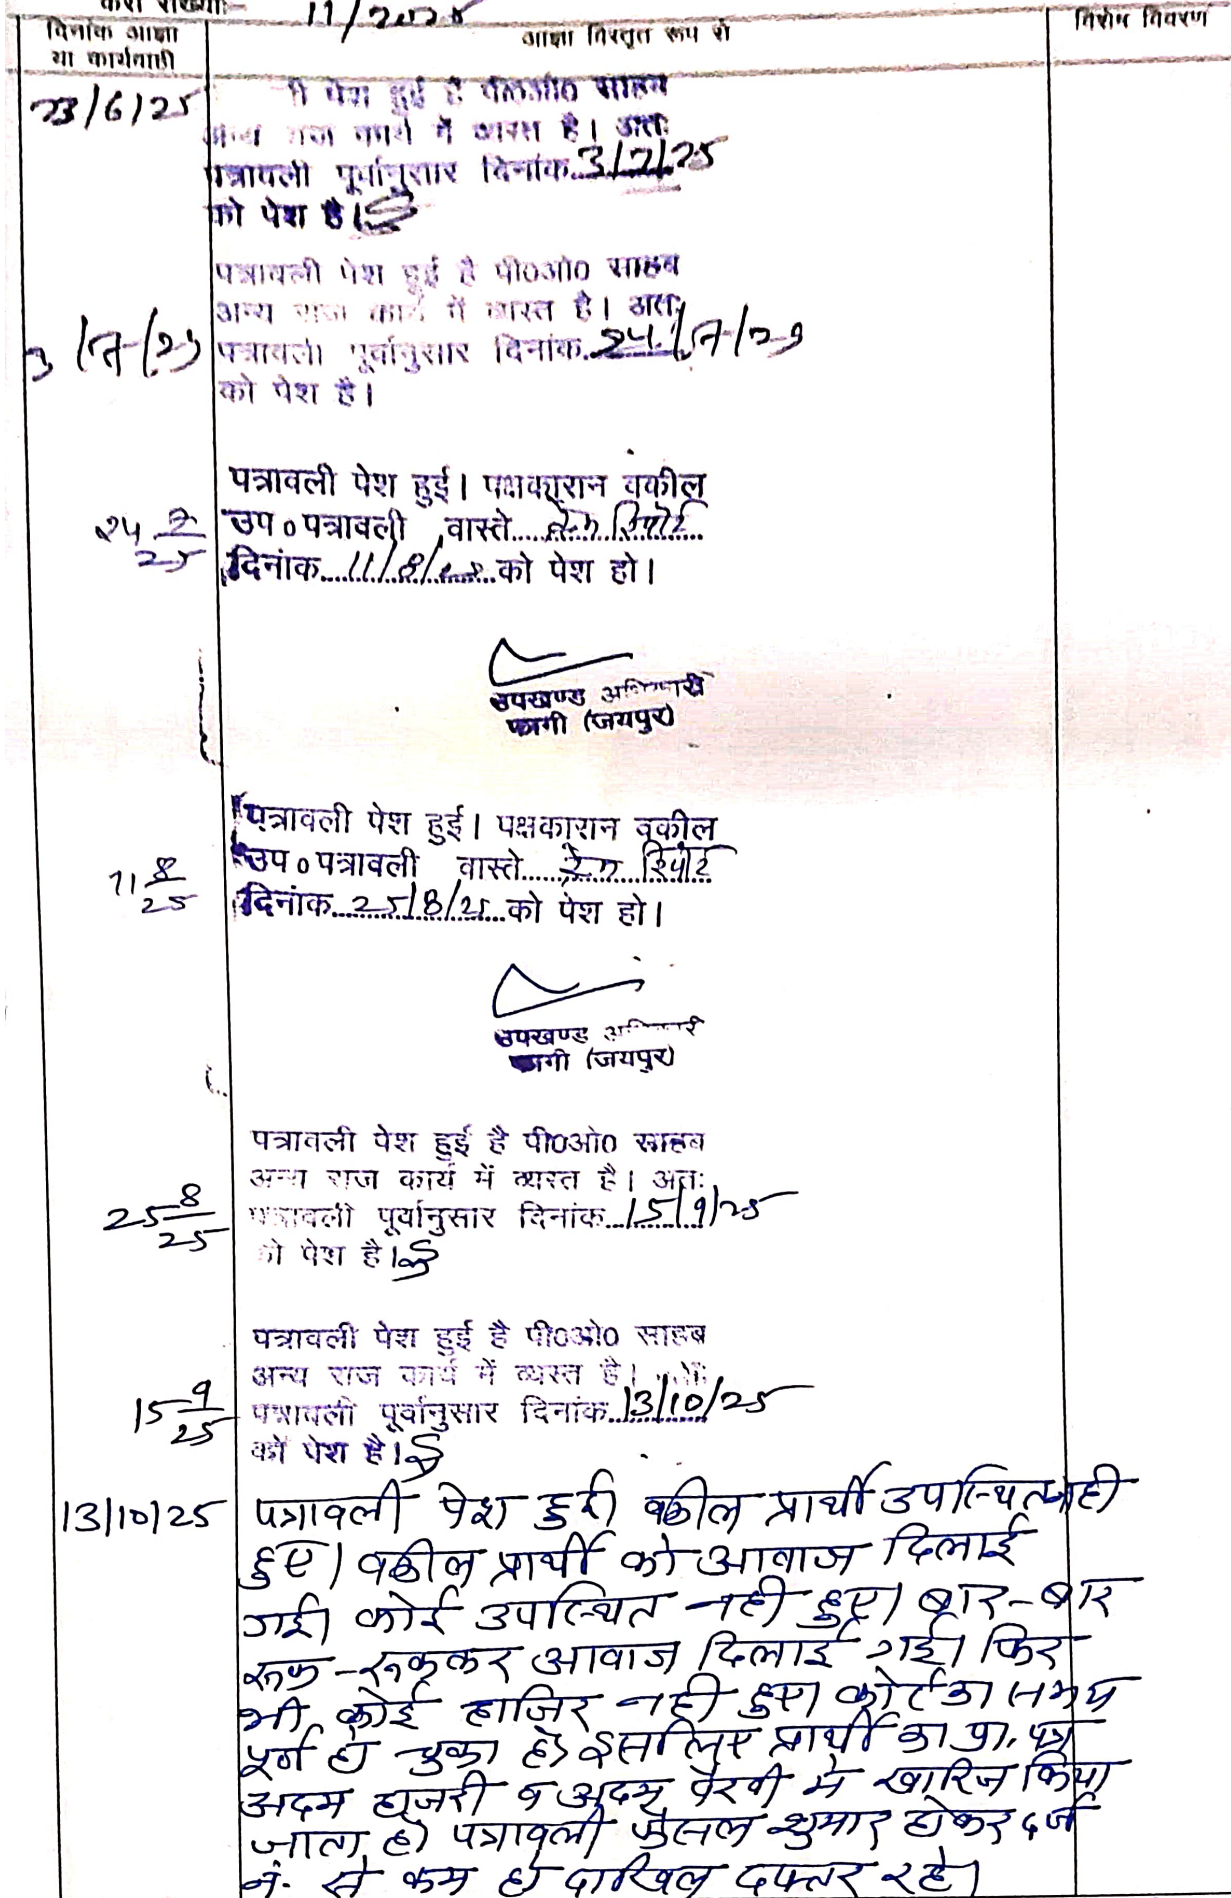 केस संख्याः- 11/2025
दिनांक आज्ञा या कार्यवाही
आज्ञा विस्तृत रूप से
विशेष विवरण
23/6/25
पेश हुई है पी०ओ० साहब
अन्य राज कार्य में व्यस्त है। अतः
पत्रावली पूर्वानुसार दिनांक 3/7/25
को पेश है।
पत्रावली पेश हुई है पी०ओ० साहब
अन्य राज कार्य में व्यस्त है। अतः
3/7/25 पत्रावली पूर्वानुसार दिनांक 24/7/25
को पेश है।
पत्रावली पेश हुई। पक्षकारान वकील
24 7/25 उप० पत्रावली वास्ते रिपोर्ट
दिनांक 11/8/25 को पेश हो।
उपखण्ड अधिकारी
फागी (जयपुर)
पत्रावली पेश हुई। पक्षकारान वकील
11 8/25 उप० पत्रावली वास्ते रिपोर्ट
दिनांक 25/8/25 को पेश हो।
उपखण्ड अधिकारी
फागी (जयपुर)
पत्रावली पेश हुई है पी०ओ० साहब
अन्य राज कार्य में व्यस्त है। अतः
25 8/25 पत्रावली पूर्वानुसार दिनांक 15/9/25
को पेश है।
पत्रावली पेश हुई है पी०ओ० साहब
अन्य राज कार्य में व्यस्त है।
15 9/25 पत्रावली पूर्वानुसार दिनांक 13/10/25
को पेश है।
13/10/25 पत्रावली पेश हुई। वकील प्रार्थी उपस्थित नही
हुए। वकील प्रार्थी को आवाज दिलाई
गई। कोई उपस्थित नही हुए। बार-बार
रूक-रूककर आवाज दिलाई गई। फिर
भी कोई हाजिर नही हुए। कोर्ट का समय
पूर्ण हो चुका है। इसलिए प्रार्थी का प्रा. पत्र
अदम हाजरी व अदम पैरवी मे खारिज किया
जाता है। पत्रावली फैसल शुमार होकर दर्ज
नं. से कम हो दाखिल दफ्तर रहे।